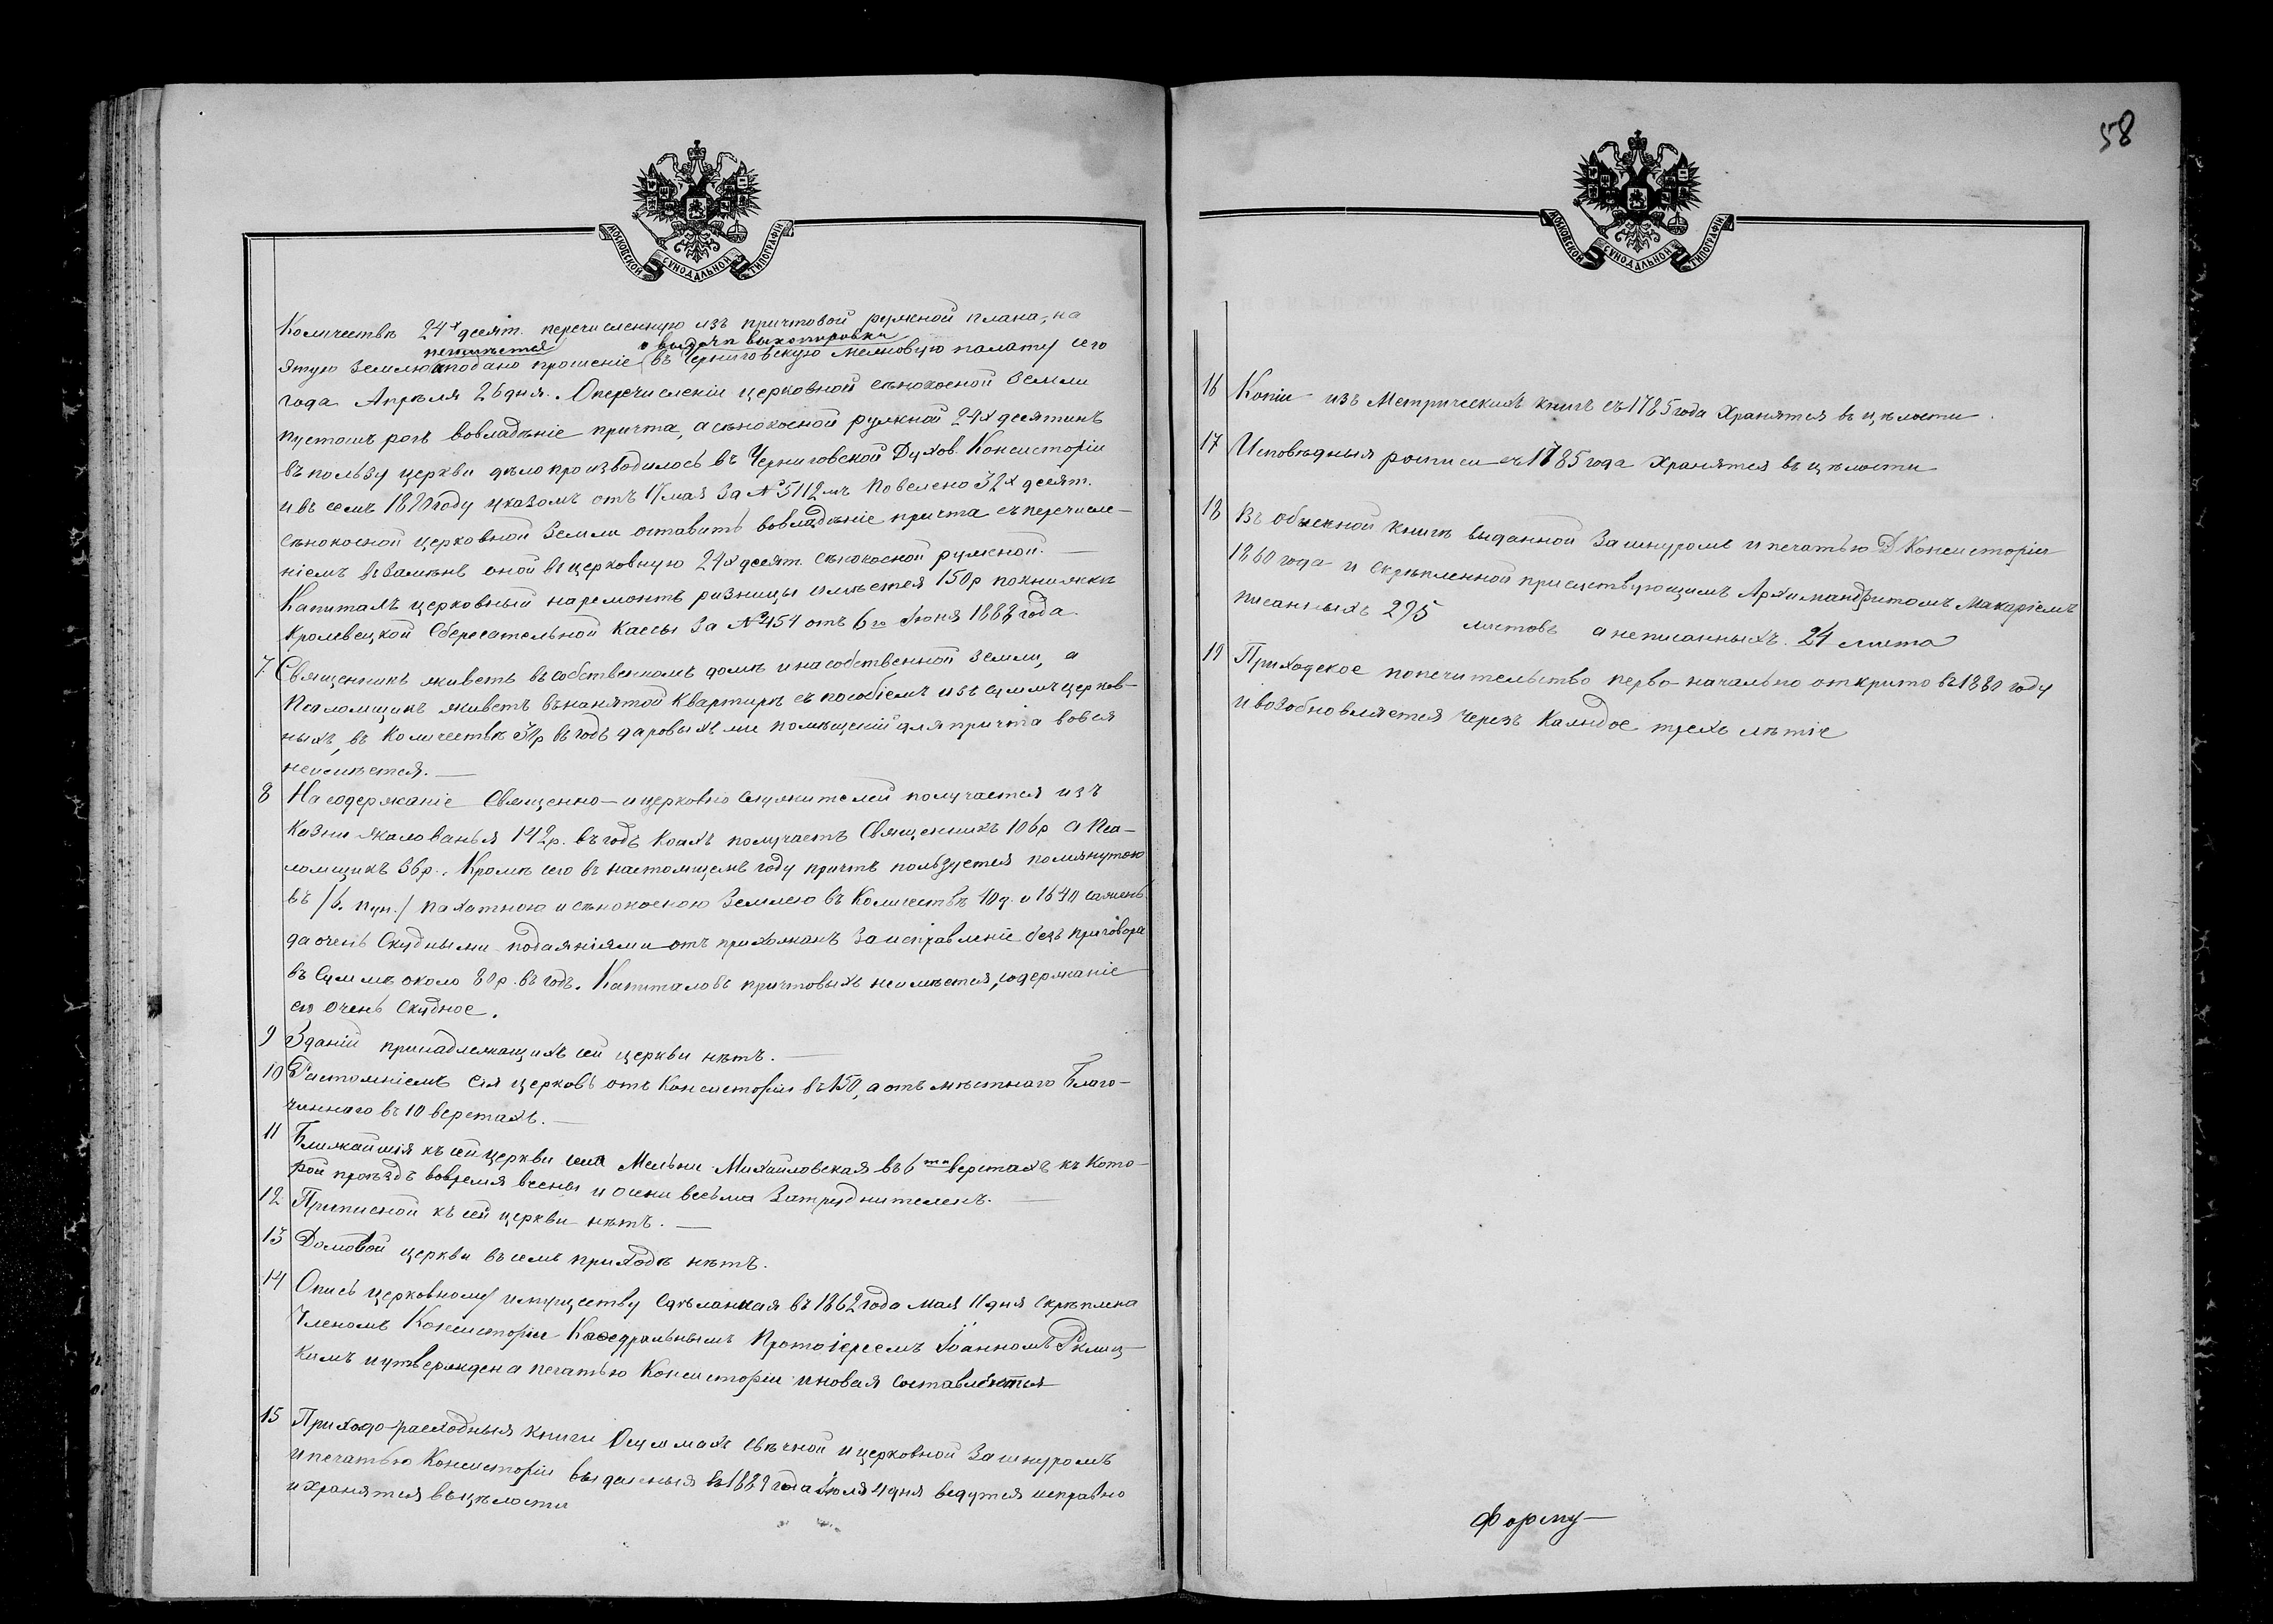 58
МОСКОВСКОЙ СѴНОДАЛЬНОЙ ТИПОГРАФІИ
Количествѣ 24х десят. перечисленную изъ причтовой ружной плана, на
неимѣется о выдачи выкопировки
этую землю подано прошеніе въ Черниговскую межовую палату сего
года Апрѣля 26 дня. О перечисленіи церковной сѣнокосной земли
пустошъ рогъ вовладѣніе причта, а сѣнокосной ружной 24х десятинъ
въ пользу церкви дѣло производилось въ Черниговской Духов. Консисторіи
и въ семъ году указомъ отъ 17 мая за № 5112мъ повелено 32х десят.
сѣнокосной церковной земли оставить вовладѣніе причта съ перечисле-
ніемъ взамѣнъ оной въ церковную 24х десят. сѣнокосной ружной. —
Капиталъ церковный на ремонтъ ризницы имѣется 150р по книжкѣ
Кролевецкой Сберегательной Кассы за № 454 отъ 6го Іюня 1888 года
7 Священникъ живетъ въ собственномъ домѣ и на собственной земли, а
Псаломщикъ живетъ въ нанятой квартирѣ съ пособіемъ изъ суммъ церков-
ныхъ, въ количествѣ въ годъ даровыхъ же помѣщеній для причта вовся
неимѣется. —
8 На содержаніе Священно-и церковно служителей получается изъ
Казни жалованья 142р. въ годъ коихъ получаетъ Священникъ 106р а Пса-
ломщикъ 36р. Кромѣ сего въ настоящемъ году причтъ пользуется помянутою
въ /6. пун./ пахатною и сѣнокосною землею въ количествѣ 10д. и 1640 сажень
да очень скудными подаяніями отъ прихожанъ за исправленіе безъ приговора
въ суммѣ около 80р. въ годъ. Капиталовъ причтовыхъ неимѣется, содержаніе
ея очень скудное.
9 Зданій принадлежащихъ сей церкви нѣтъ. —
10 Растояніемъ сія церковь отъ Консисторіи въ 150, а отъ мѣстнаго Благо-
чиннаго въ 10 верстахъ. —
11 Ближайшія къ сей церкви села Мельни Михайловская въ 6ти верстахъ къ кото-
рой проѣздъ вовремя весны и осени весьма затруднителенъ. —
12 Приписной къ сей церкви нѣтъ. —
13 Домовой церкви въ семъ приходѣ нѣтъ.
14 Опись церковному имуществу сдѣланная въ 1862 года мая 11 дня скрѣплена
Членомъ Консисторіи Каѳедральнымъ Протоіереемъ Іоанномъ Рклиц-
кимъ и утверждена печатью Консисторіи и новая составляется
15 Приходо-расходныя книги о суммахъ свѣчной и церковной за шнуромъ
и печатью Консисторіи выданныя въ года Іюля 4 дня ведутся исправно
и хранятся въ цѣлости
МОСКОВСКОЙ СѴНОДАЛЬНОЙ ТИПОГРАФІИ
16 Копіи изъ Метрическихъ книгъ съ 1785 года хранятся въ цѣлости.
17 Исповѣдныя росписи съ 1785 года хранятся въ цѣлости
18 Въ обыскной книгѣ выданной за шнуромъ и печатью Д Консисторіи
1860 года и скрѣпленной присутствующимъ Архимандритомъ Макаріемъ
писанныхъ 295 листовъ а неписанныхъ. 24 листа
19 Приходское попечительство перво-начально открыто въ 1880 году
и возобновляется черезъ каждое трехъ лѣтіе
Форму—